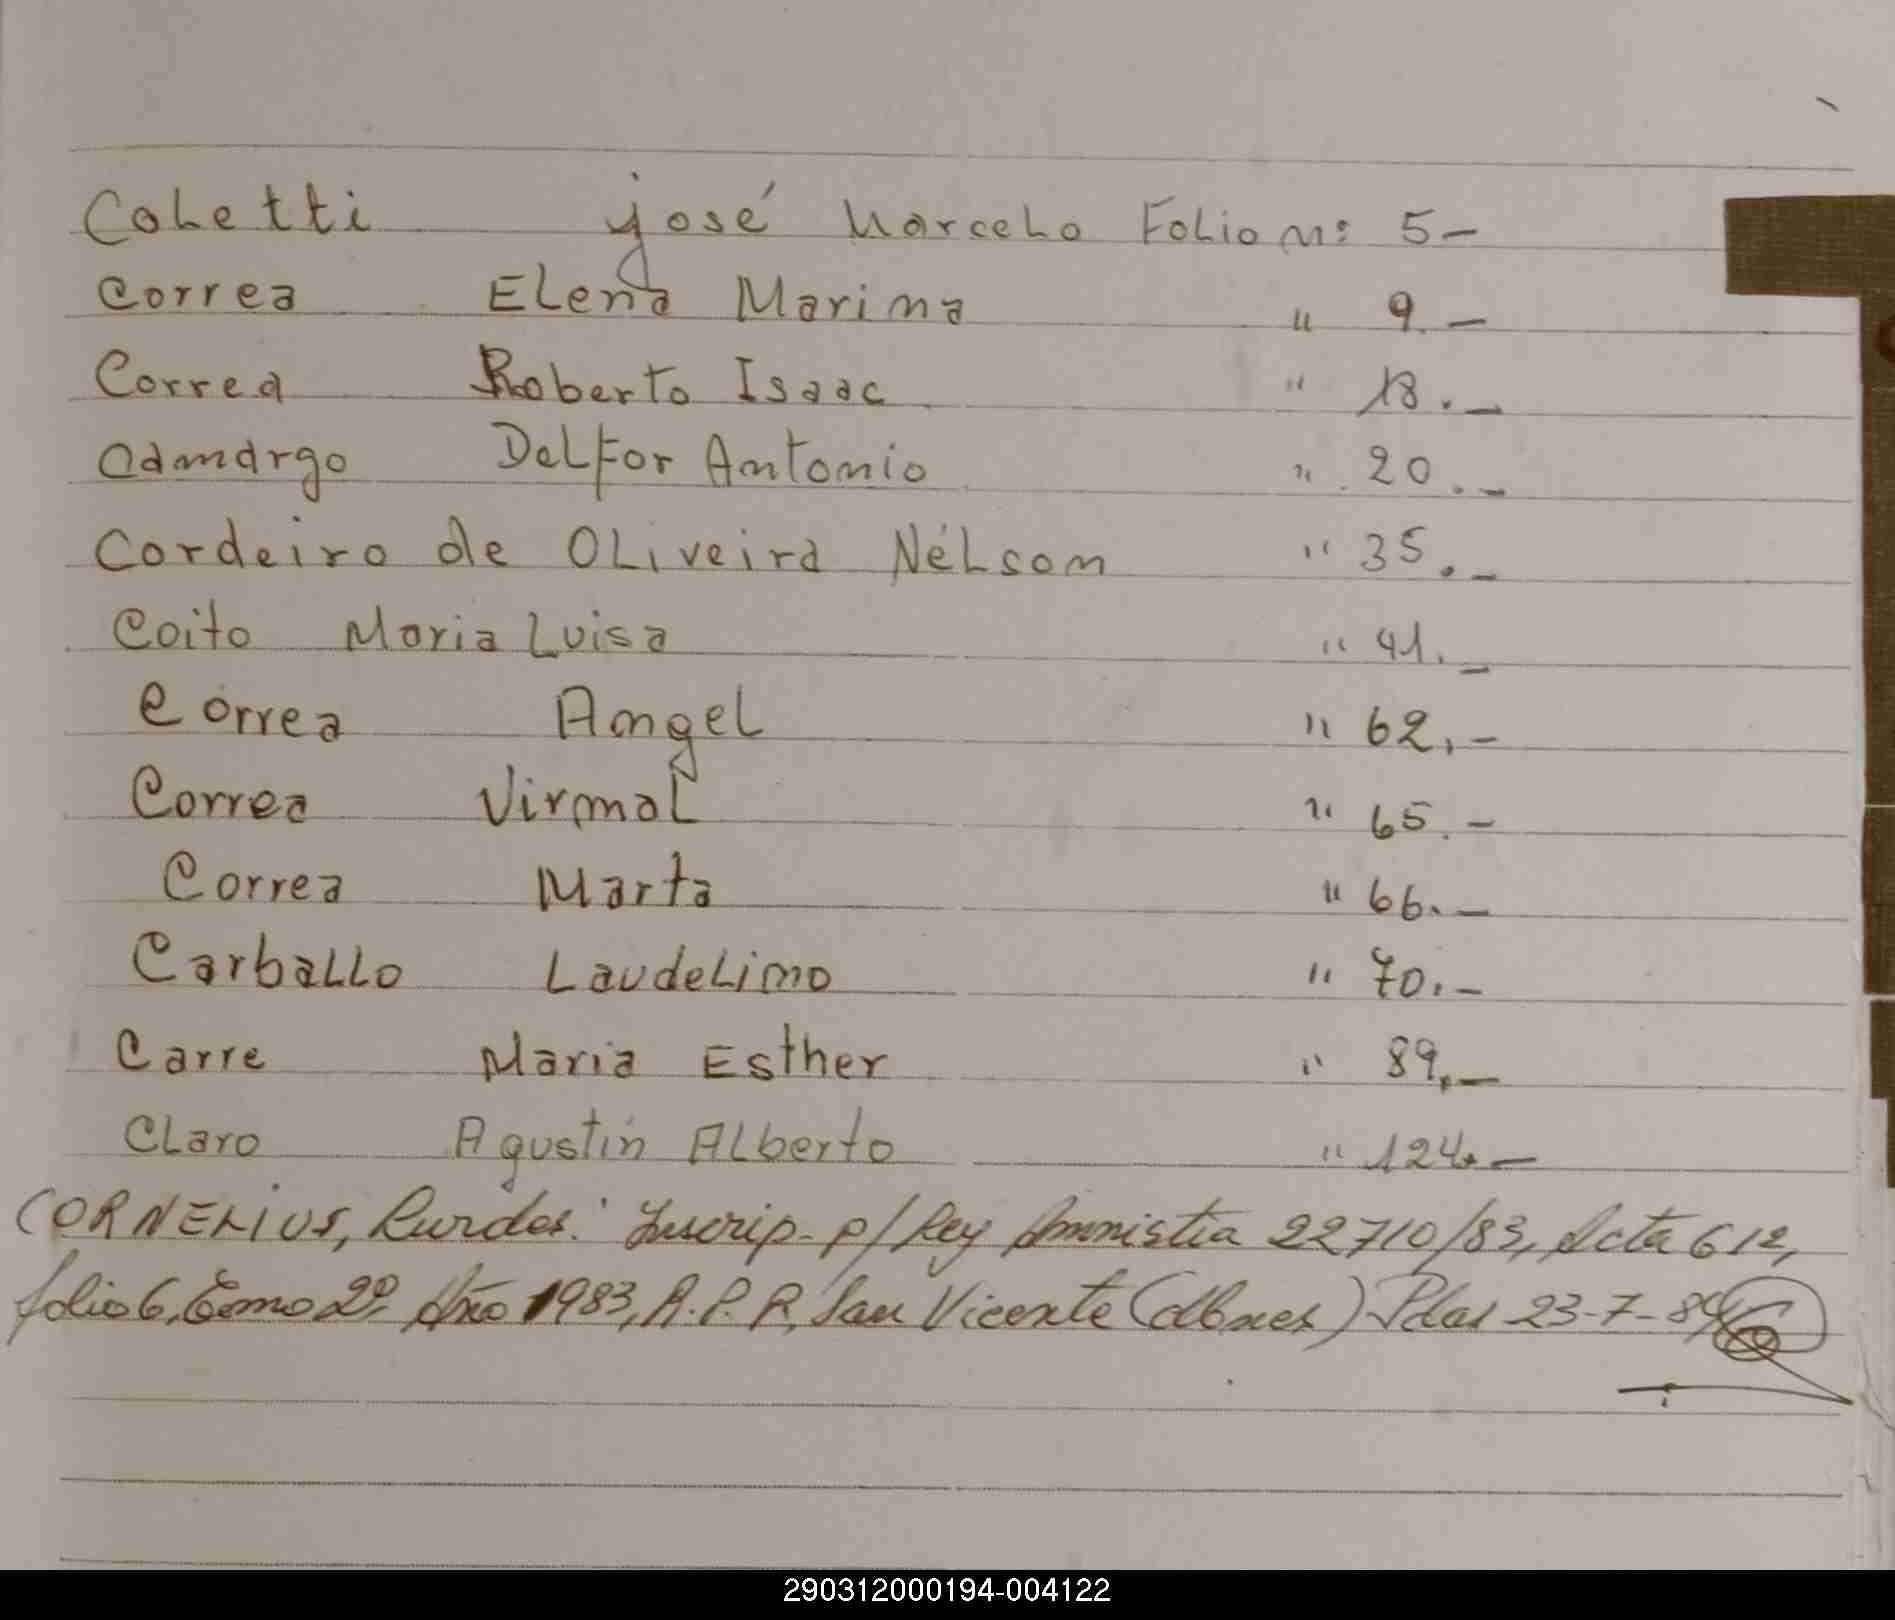 Coletti José Marcelo Folio n: 5-
Correa Elena Marina " 9.-
Correa Roberto Isaac " 18.-
Camargo Delfor Antonio " 20.-
Cordeiro de Oliveira Nélson " 35.-
Coito Maria Luisa " 41.-
Correa Angel " 62.-
Correa Virmal " 65.-
Correa Marta " 66.-
Carballo Laudelino " 70.-
Carre Maria Esther " 89.-
Claro Agustín Alberto " 124.-
CORNELIUS, Lurdes: Inscrip. p/ Ley Amnistia 22710/83, Acta 612,
folio 6, Tomo 2º, Año 1983, R.P.P, San Vicente (Mnes) Pdas 23-7-84
290312000194-004122